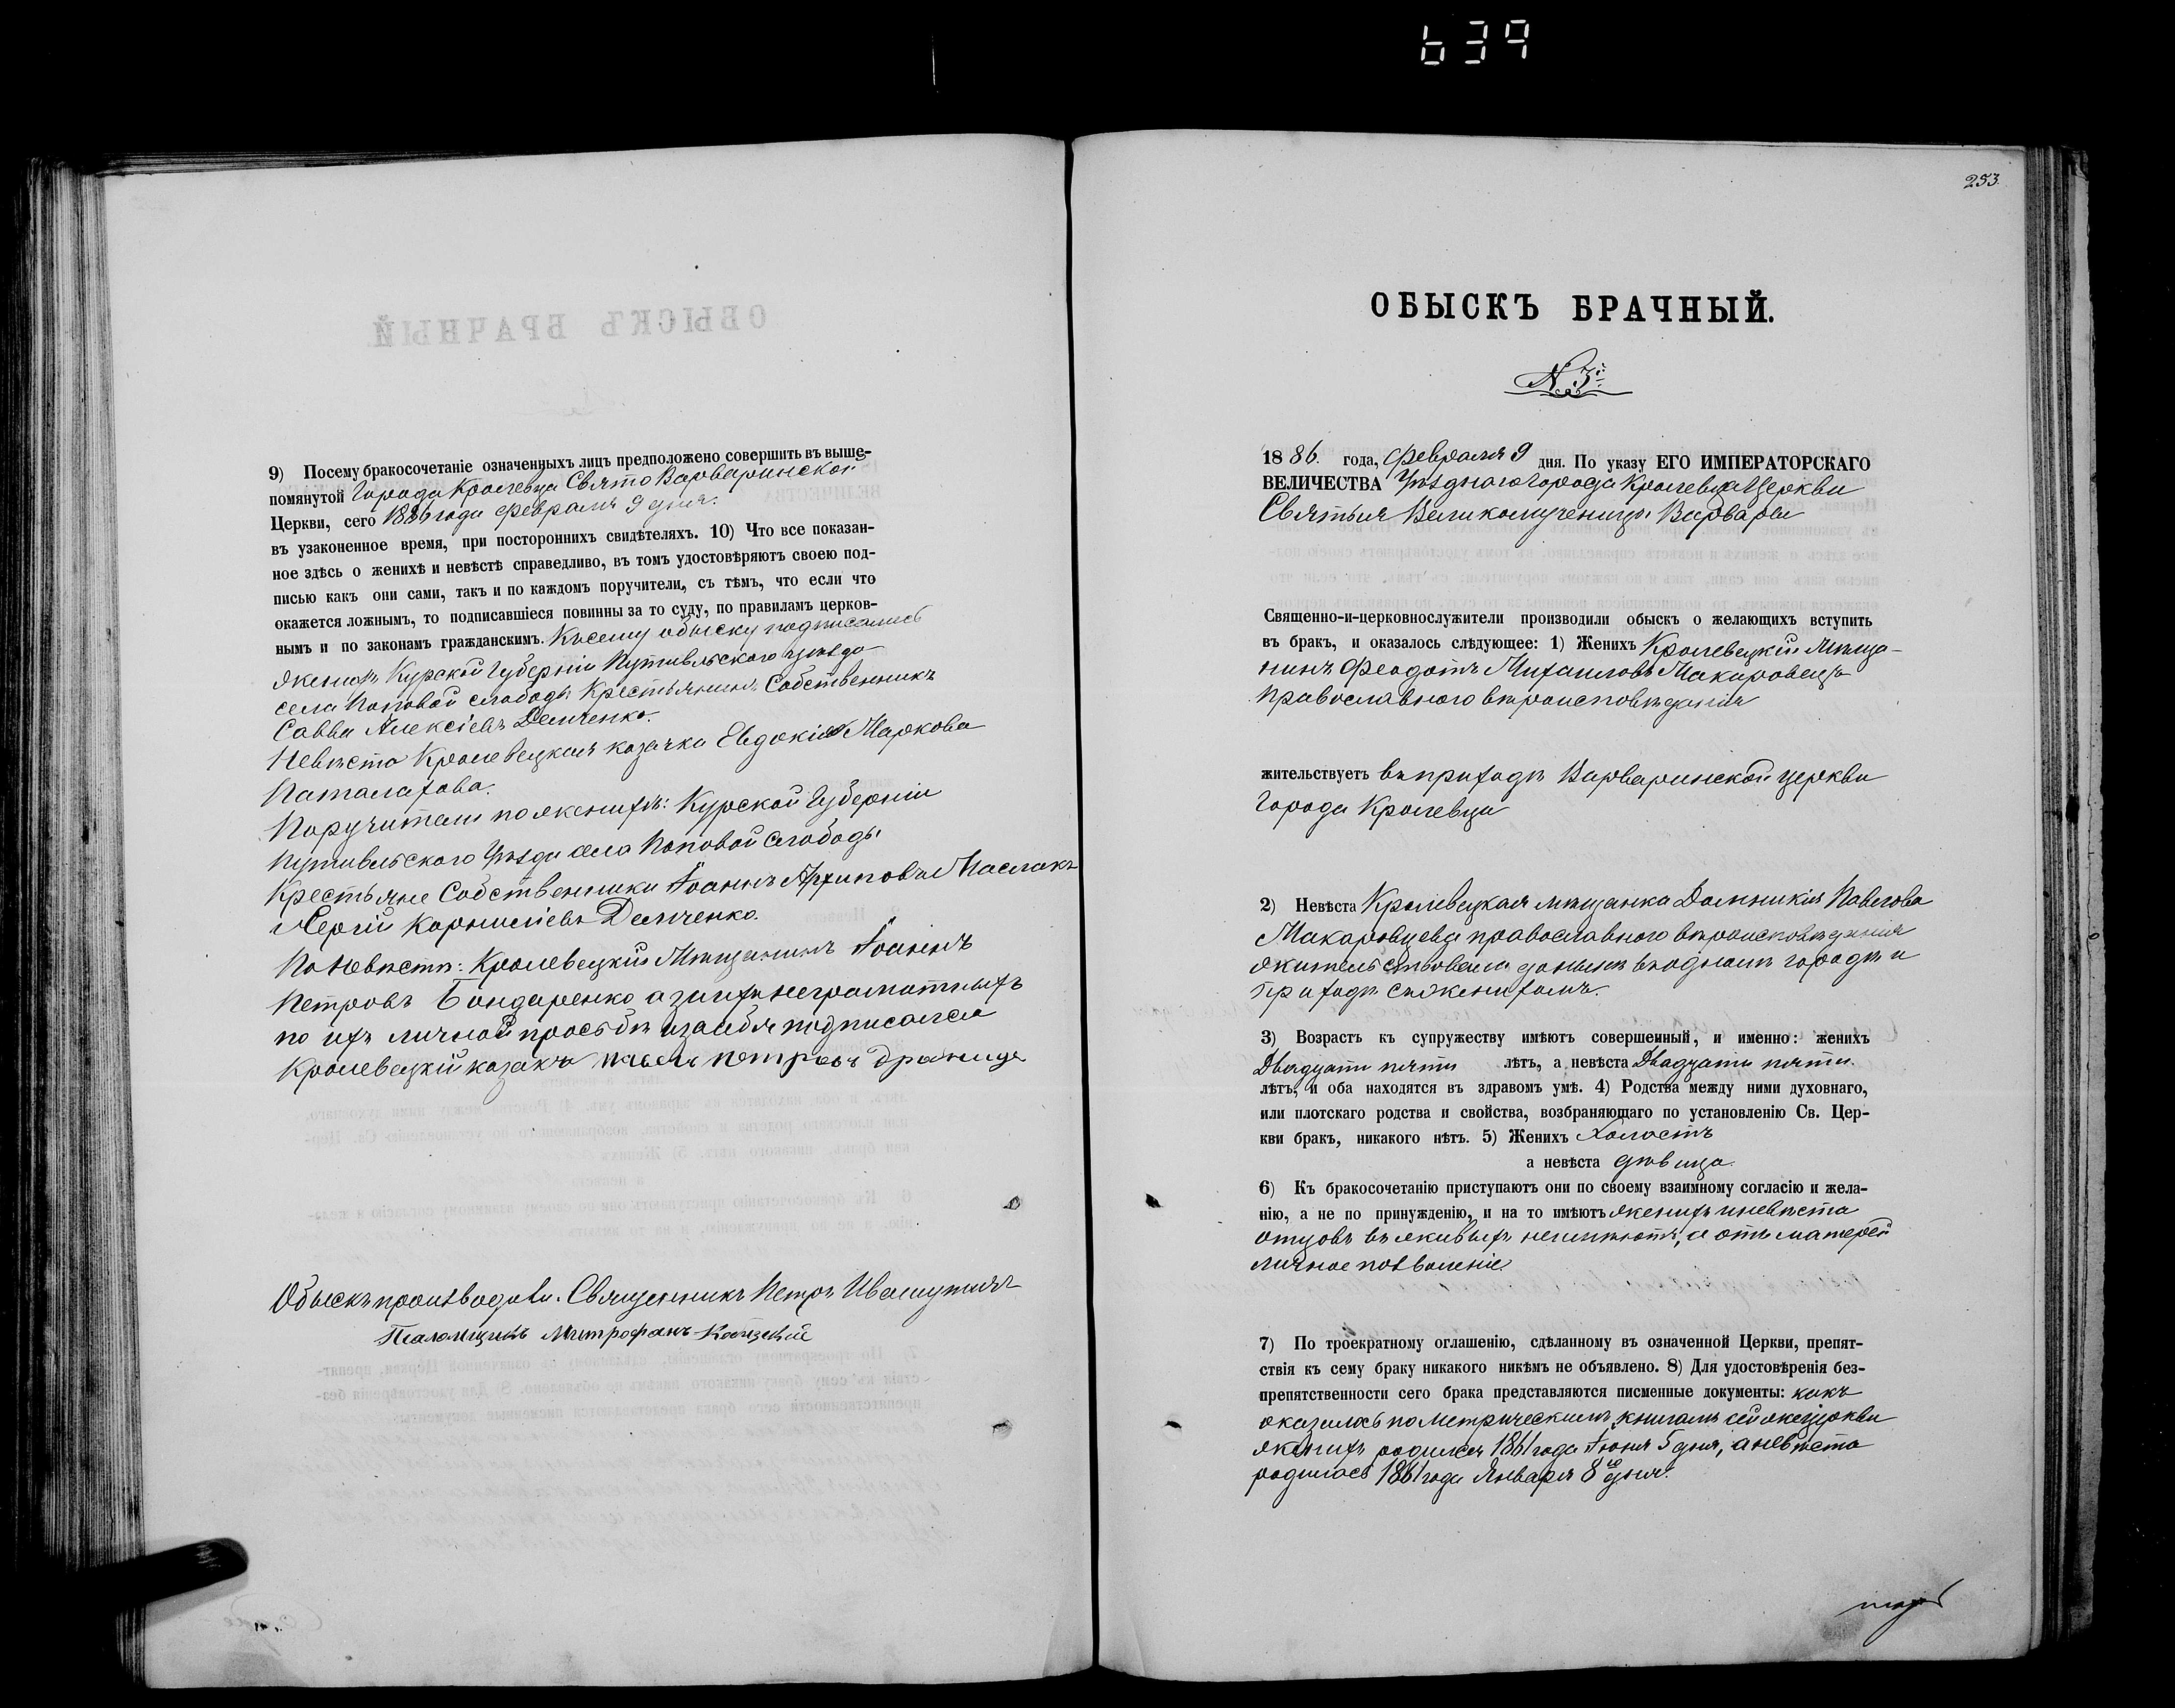 639
9) Посему бракосочетаніе означенныхъ лицъ предположено совершить въ выше-
помянутой Города Кролевца Свято Варваринской
Церкви, сего 1886 года Февраля 9 дня.
въ узаконенное время, при постороннихъ свидѣтеляхъ. 10) Что все показан-
ное здѣсь о женихѣ и невѣстѣ справедливо, въ томъ удостовѣряютъ своею под-
писью какъ они сами, такъ и по каждомъ поручители, съ тѣмъ, что если что
окажется ложнымъ, то подписавшіеся повинны за то суду, по правиламъ церков-
нымъ и по законамъ гражданскимъ. Къ сему обыску подписались
женихъ Курской Губерніи Путивльского уѣзда
села Поповой слободы Крестьянинъ Собственникъ
Савва Алексіевъ Демченко.
Невѣста Кролевецкая козачка Евдокія Маркова
Паталахова.
Поручители по женихѣ: Курской Губерніи
Путивльского Уѣзда села Поповой Слободы
Крестьяне Собственники Іоаннъ Архиповъ Маслакъ
и Сергій Корниліевъ Демченко.
По Невѣсте: Кролевецкій Мѣщанинъ Іоаннъ
Петровъ Бондаренко а за ихъ неграмотныхъ
по ихъ личной просьбѣ и за себя подписался
Кролевецкій козакъ петровъ
Обыскъ производили: Священникъ Петръ
Псаломщикъ Митрофанъ
253.
ОБЫСКЪ БРАЧНЫЙ.
N 3й
1886. года, Февраля 9 дня. По указу ЕГО ИМПЕРАТОРСКАГО
ВЕЛИЧЕСТВА Уѣздного города Кролевца Церкви
Святыя Великомученицы Варвары
Священно-и-церковнослужители производили обыскъ о желающихъ вступить
въ бракъ, и оказалось слѣдующее: 1) Женихъ Кролевецкій Мѣща-
нинъ Феодотъ Михаиловъ Макаровецъ
православного вѣроисповѣданія
жительствуетъ въ приходѣ Варваринской церкви
Города Кролевца
2) Невѣста Кролевецкая мѣщанка Домникія Павлова
Макаровцева православного вѣроисповѣданія
жительствовала донынѣ въ одномъ городѣ и
приходѣ съ женихомъ.
3) Возрастъ къ супружеству имѣютъ совершенный, и именно: женихъ
Двадцати пяти лѣтъ, а невѣста Двадцати пяти.
лѣтъ, и оба находятся въ здравомъ умѣ. 4) Родства между ними духовнаго,
или плотскаго родства и свойства, возбраняющаго по установленію Св. Цер-
кви бракъ, никакого нѣтъ. 5) Женихъ Холостъ
а невѣста дѣвица.
6) Къ бракосочетанію приступаютъ они по своему взаимному согласію и жела-
нію, а не по принужденію, и на то имѣютъ женихъ и невѣста
отцовъ въ живыхъ неимѣютъ, а отъ матерей
личное позволеніе.
7) По троекратному оглашенію, сдѣланному въ означенной Церкви, препят-
ствія къ сему браку никакого никѣмъ не объявлено. 8) Для удостовѣренія без-
препятственности сего брака представляются писменные документы: какъ
оказалось по Метрическимъ книгамъ сей же церкви
женихъ родился 1861 года Іюня 5 дня, а невѣста
родилась 1861 года Января 8го дня.